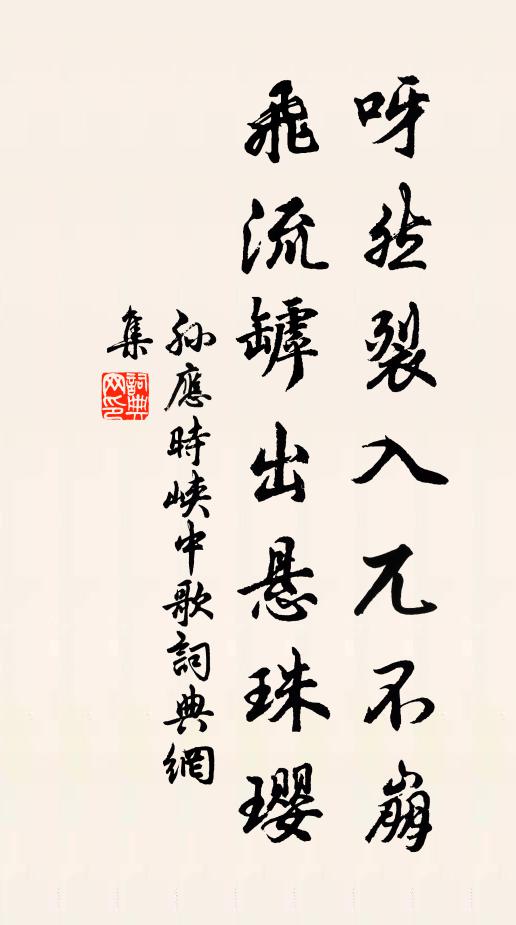 呀然裂入兀不崩
飛流罅出悬珠璎
孙應時峡中歌詞典網
集
詞典网印